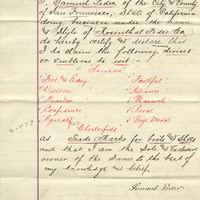 I, Samuel Feder of the City & County
of San Francisco, State of California
doing business under the name
& Style of Rosenthal Feder & Co
do hereby certify & declare that
I do claim the following devices
or emblems to wit:
Samson
Feet & Easy Faithful
Union Reliance
Premium
Confidence Rival
Equality Pure Metal
Chesterfield
as Trade Marks for boots & Shoes
and that I am the Sole & Exclusive
owner of the Same to the best of
my knowledge & belief.